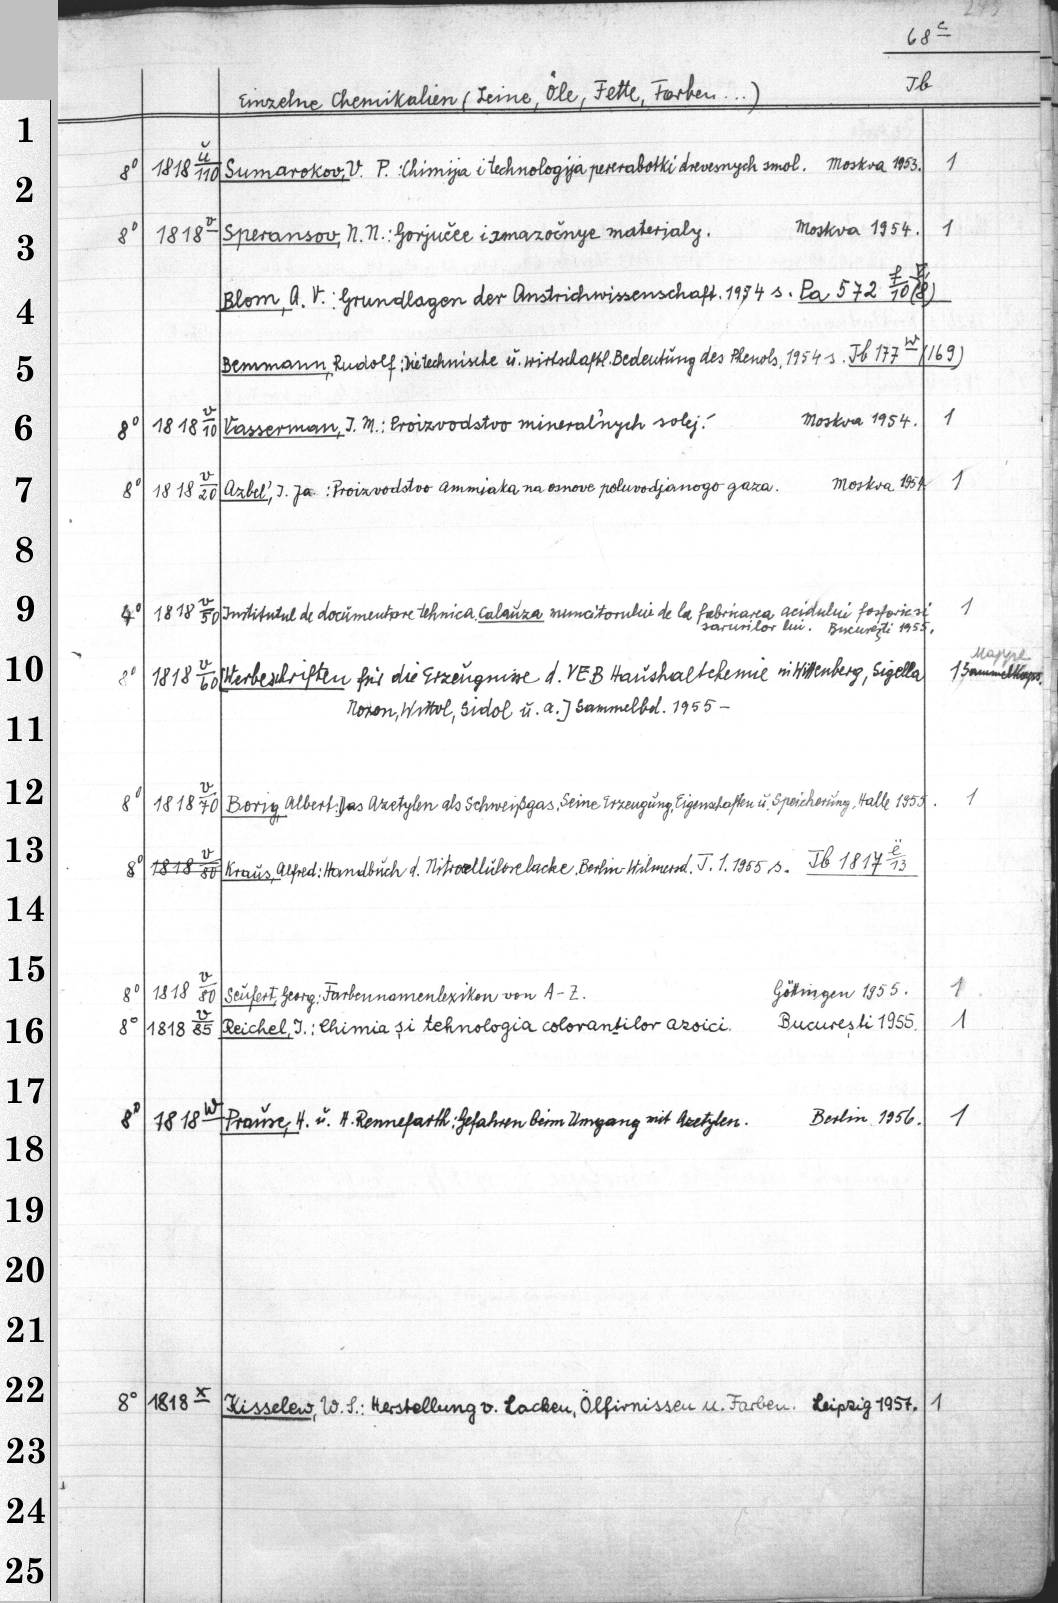 68 c
Einzelne Chemikalien (Leine, Öle, Fette, Farben ...) Ib
1
8° 1818 ü/110 Sumarokov, V. P.: Chimija i technologija pererabotki drevesnych smol. Moskva 1953. 1
2
3 8° 1818 v Speransov, N. N.: Gorjučee i smazočnye materjaly. Moskva 1954. 1
4 Blom, A. V.: Grundlagen der Anstrichwissenschaft. 1954 s. Pa 572 f/10 (8)
5 Bemmann, Rudolf: Die technische ü. wirtschaftl. Bedeutüng des Phenols, 1954 s. Ib 177 w (169)
6 8° 1818 v/10 Vasserman, I. M.: Proizvodstvo mineral'nych solej. Moskva 1954. 1
7 8° 1818 v/20 Azbel', I. Ja.: Proizvodstvo ammiaka na osnove poluvodjanogo gaza. Moskva 1954 1
8
9 4° 1818 v/50 Institutul de documentare tehnica. Calaüza muncitorului de la fabricarea acidului fosforic si
sarurilor lui. Bucureşti 1955. 1
Mappe
10 8° 1818 v/60 [Werbeschriften für die Erzeügnisse d. VEB Haüshaltchemie in Wittenberg, Sigella 1 Sammelkaps.
Noxon, Wittol, Sidol ü. a.] Sammelbd. 1955 –
11
12 8° 1818 v/70 Borig, Albert: Das Azetylen als Schweißgas. Seine Erzeugüng, Eigenschaften ü. Speicherüng. Halle 1955. 1
13 8° 1818 v/80 Kraüs, Alfred: Handbüch d. Nitrocellülose lacke. Berlin-Wilmersd. T. 1. 1955 s. Ib 1817 ë/13
14
15
8° 1818 v/80 Seüfert, Georg: Farbennamenlexikon von A-Z. Göttingen 1955. 1
16 8° 1818 v/85 Reichel, I.: Chimia şi tehnologia coloranţilor azoici. Bucureşti 1955. 1
17
8° 1818 w Praüse, H. ü. H. Rennefarth: Gefahren beim Umgang mit Azetylen. Berlin 1956. 1
18
19
20
21
22 8° 1818 x Kisselew, W. S.: Herstellung v. Lacken, Ölfirnissen u. Farben. Leipzig 1957. 1
23
24
25